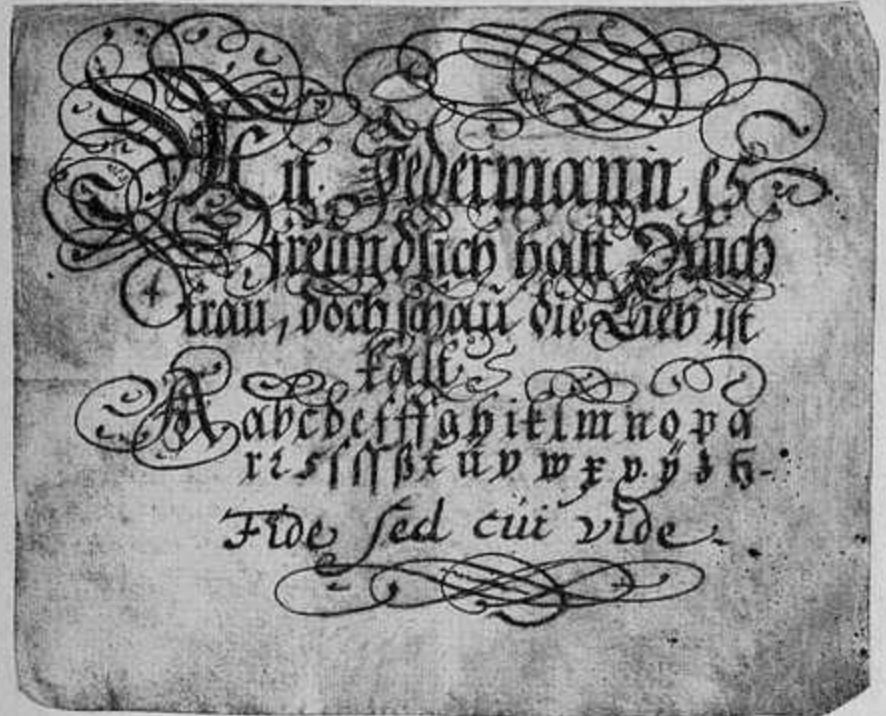 Mit Jedermann es
freundlich halt Auch
trau, doch schau die Lieb ist
kalt
A a b c d e f ff g h i k l m n o p q
r ꝛ s ſ ſſ ß t u v w x y. ÿ z
Fide ſed cui vide.